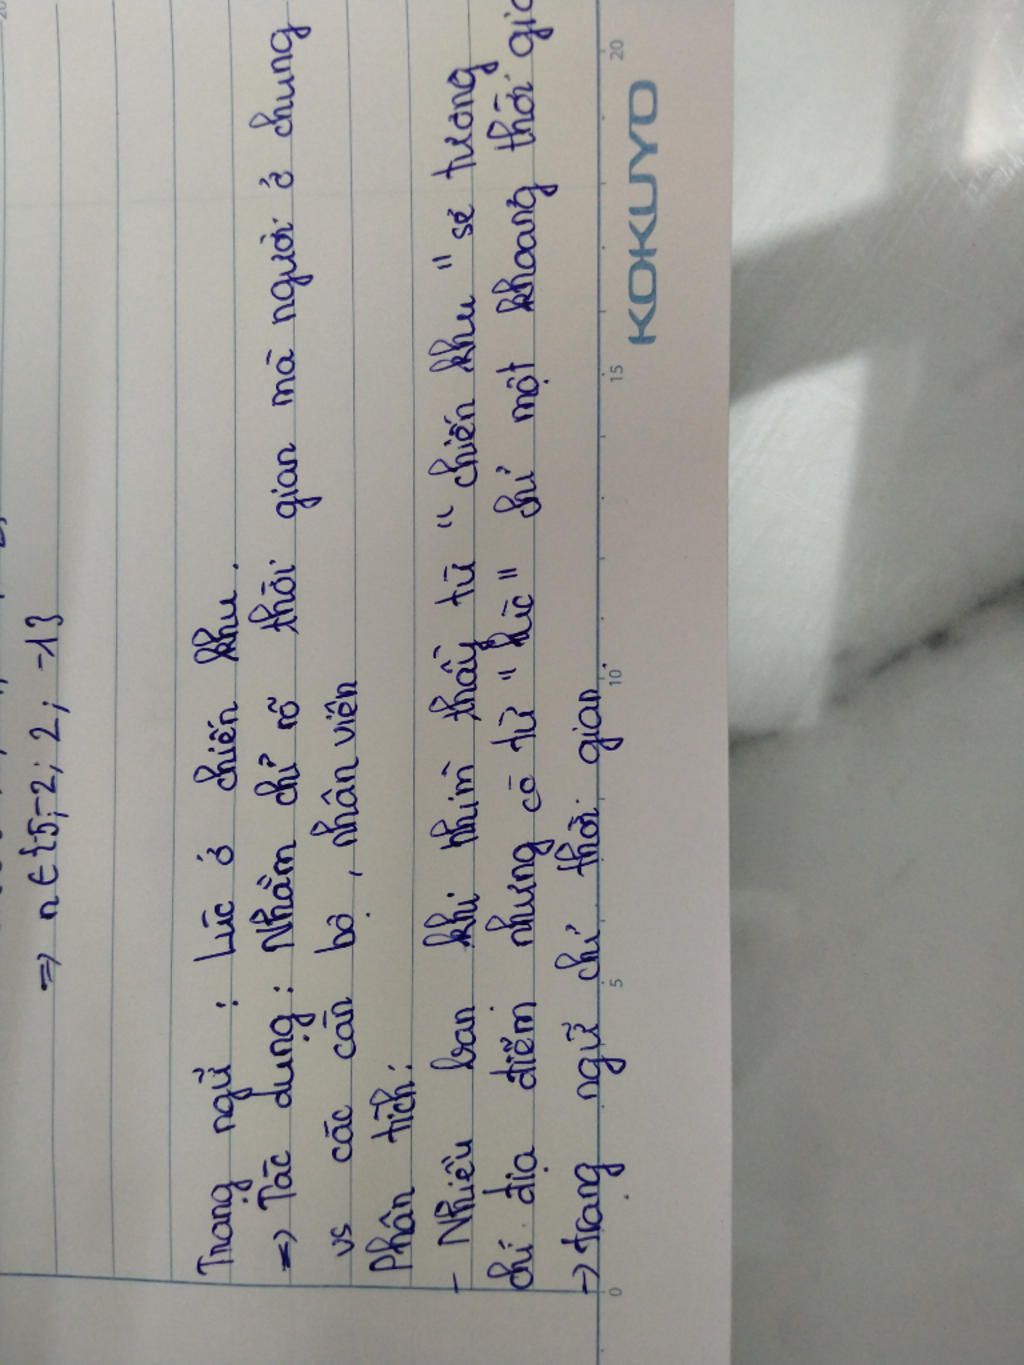 => n ∈ {-5; -2; 2; -1}
Trạng ngữ : Lúc ở chiến khu.
=> Tác dụng : Nhằm chỉ rõ thời gian mà người ở chung
vs các cán bộ, nhân viên
Phân tích:
- Nhiều bạn khi nhìn thấy từ " chiến khu " sẽ tương
chỉ địa điểm nhưng có từ " lúc " chỉ một khoảng thời gia
-> trạng ngữ chỉ thời gian
0 5 10 15 20
KOKUYO